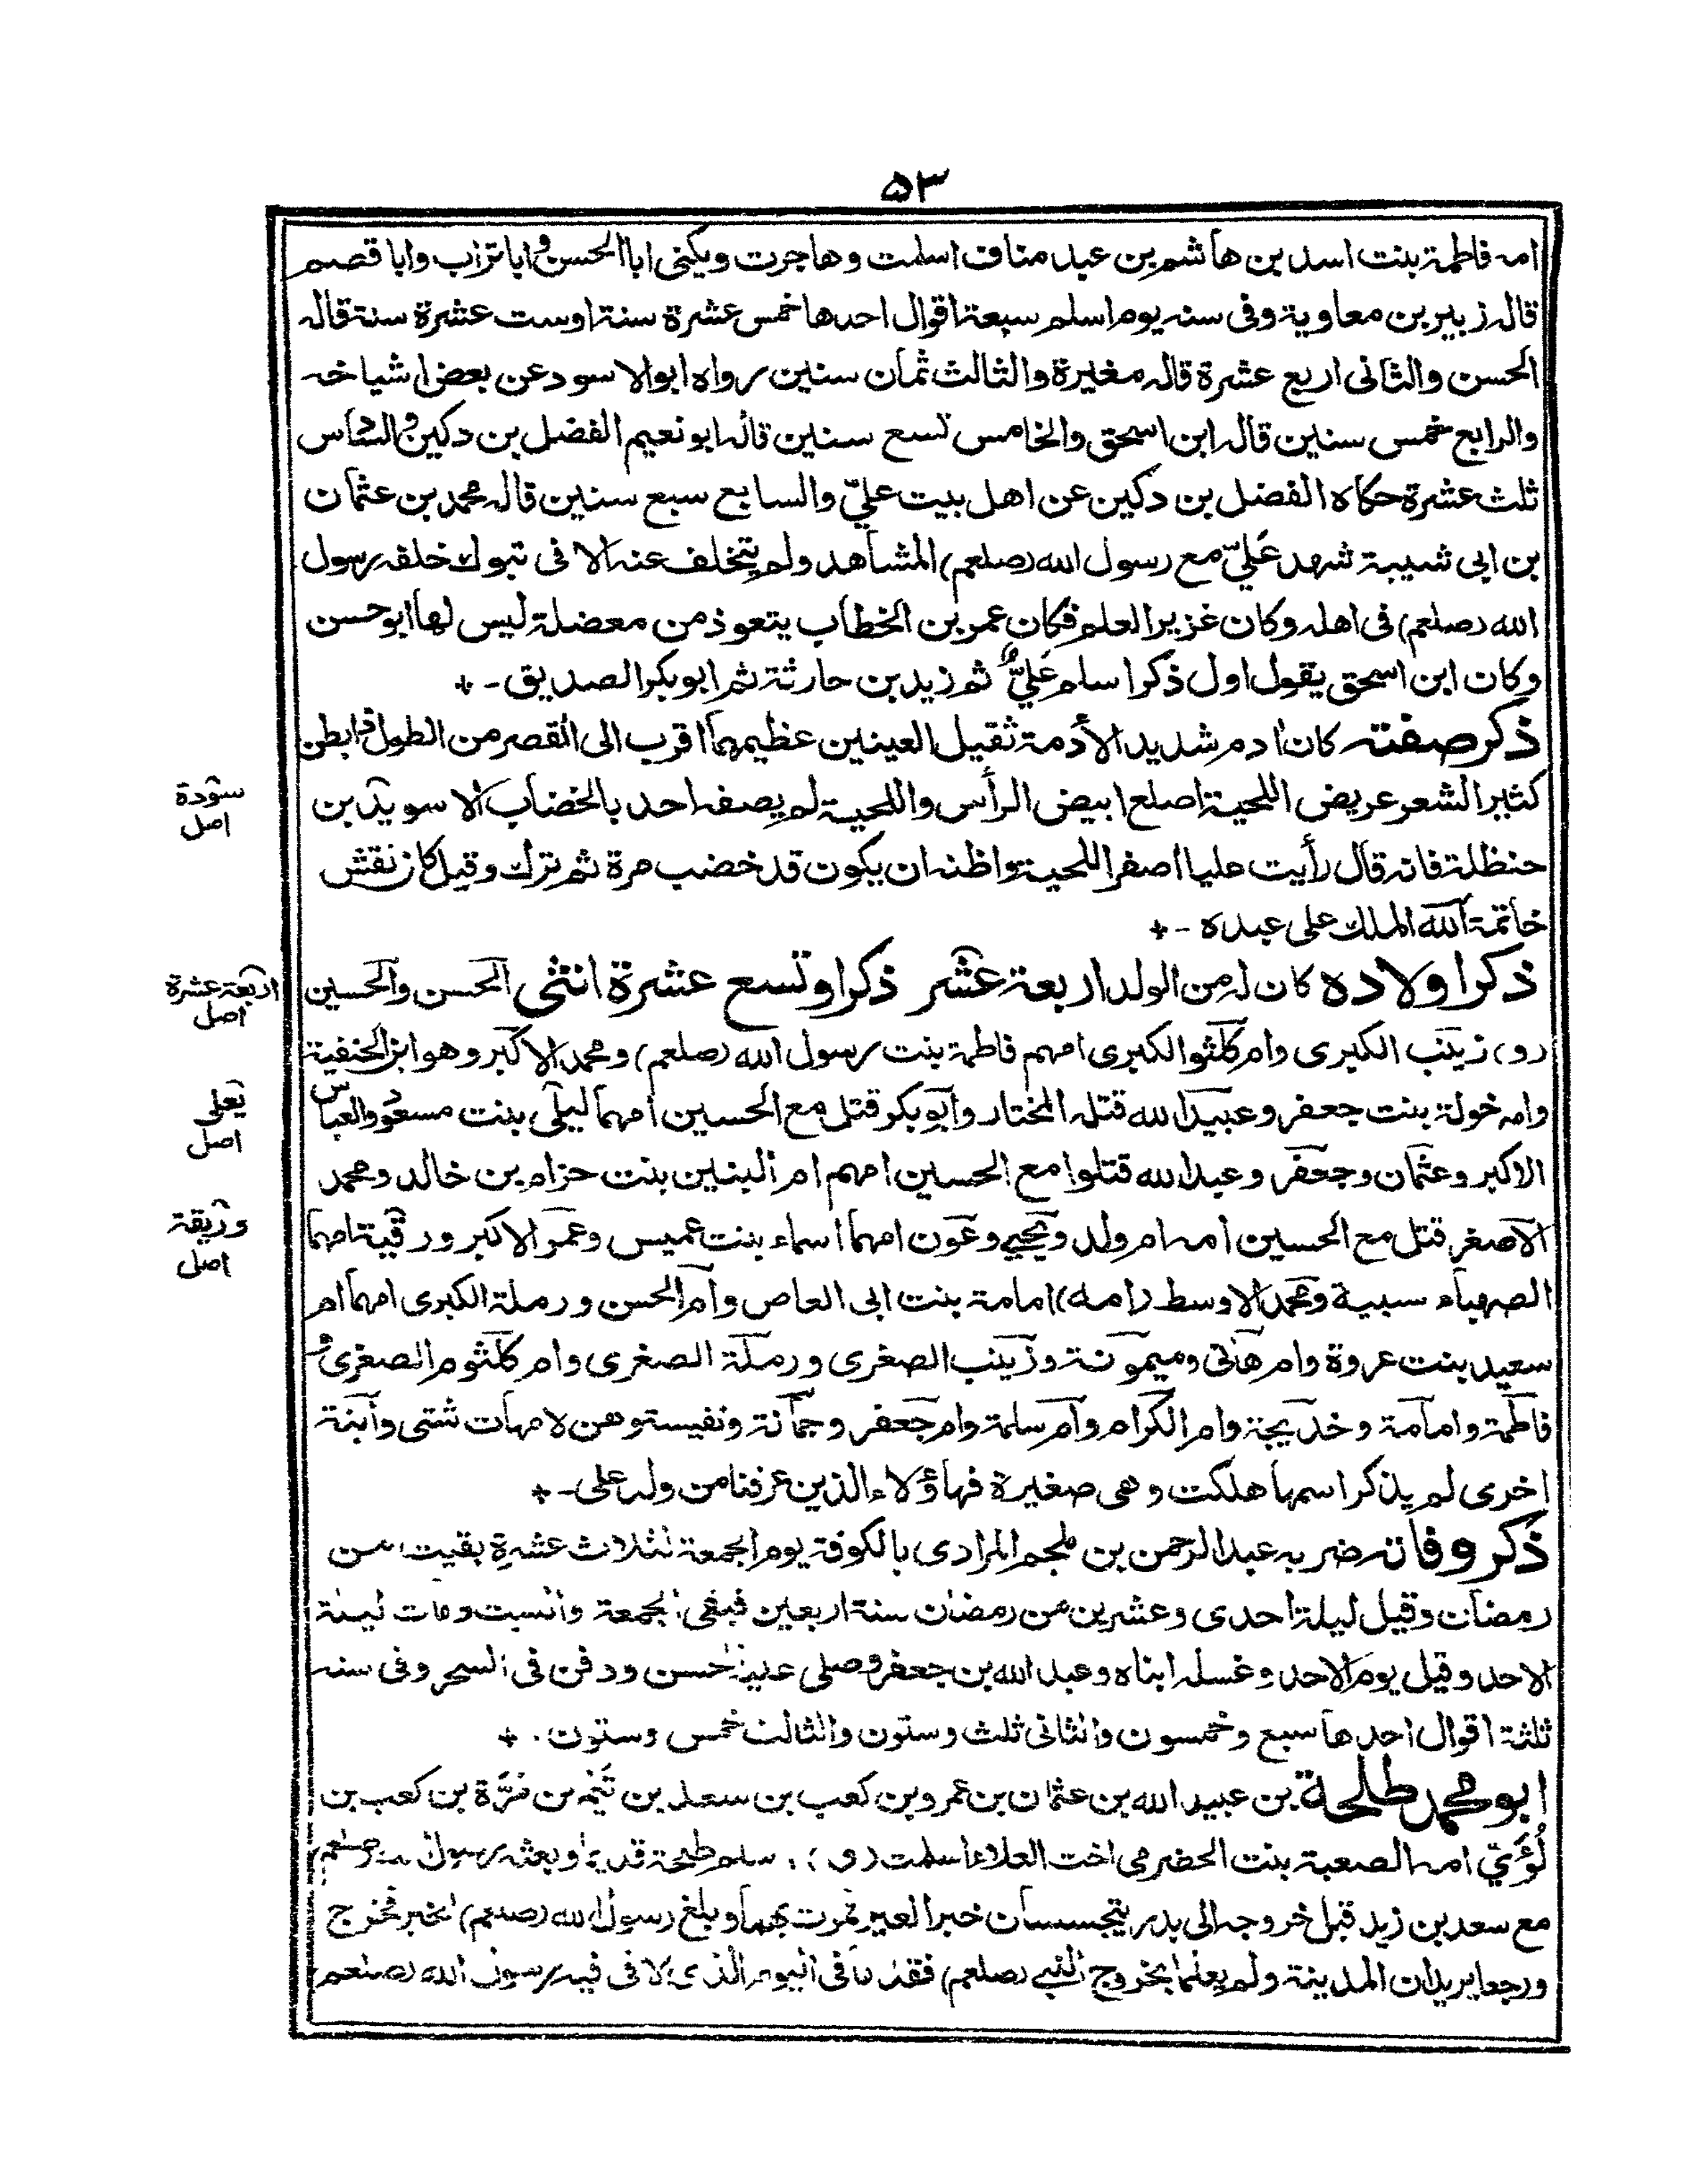 ٥٣
امه فاطمة بنت اسد بن هاشم بن عبد مناف اسلمت وهاجرت ويكنى ابا الحسن وابا تراب وابا قصم
قاله زبير بن معاوية وفى سنه يوم اسلم سبعة اقوال احدها خمس عشرة سنة اوست عشرة سنة قاله
الحسن والثانى اربع عشرة قاله مغيرة والثالث ثمان سنين رواه ابو الاسود عن بعض اشياخه
والرابع خمس سنين قاله ابن اسحق والخامس تسع سنين قاله ابو نعيم الفضل بن دكين والسادس
ثلث عشرة حكاه الفضل بن دكين عن اهل بيت عليّ والسابع سبع سنين قاله محمد بن عثمان
بن ابى شيبة شهد عَليّ مع رسول الله (صلعم) المشاهد ولم يتخلف عنه الا فى تبوك خلفه رسول
الله (صلعم) فى اهله وكان غزير العلم فكان عمر بن الخطاب يتعوذ من معضلة ليس لها ابو حسن
وكان ابن اسحق يقول اول ذكر اسلم عَليٌّ ثم زيد بن حارثة ثم ابو بكر الصديق -
ذكر صفته كان ادم شديد الأدمة ثقيل العينين عظيمهما اقرب الى القصر من الطول ذا بطن
كثير الشعر عريض اللحية اصلع ابيض الرأس واللحية لم يصفه احد بالخضاب الا سويد بن
سودة
اصل
حنظلة فانه قال رأيت عليا اصفر اللحية واظنه ان يكون قد خضب مرة ثم ترك وقيل كان نقش
خاتمة الله الملك على عبده -
ذكر اولاده كان له من الولد اربعة عشر ذكرا وتسع عشرة انثى الحسن والحسين
اربعة عشرة
اصل
(و) زينب الكبرى وام كلثوالكبرى امهم فاطمة بنت رسول الله (صلعم) ومحمد الاكبر وهو ابن الحنفية
وامه خولة بنت جعفر وعبيد الله قتله المختار وابو بكر قتل مع الحسين امهما ليلى بنت مسعود والعباس
يعلى
اصل
الاكبر وعثمان وجعفر وعبد الله قتلوا مع الحسين امهم ام البنين بنت حزام بن خالد ومحمد
الاصغر قتل مع الحسين امه ام ولد ويحيى وعون امهما اسماء بنت عميس وعمر الاكبر ورقية امهما
وريقة
اصل
الصهباء سبيبة ومحمد الاوسط (امه) امامة بنت ابى العاص وام الحسن ورملة الكبرى امهما ام
سعيد بنت عروة وام هانى وميمونة وزينب الصغرى ورملة الصغرى وام كلثوم الصغرى و
فاطمة وامامة وخديجة وام الكرام وام سلمة وام جعفر وجمانة ونفيسة وهن لامهات شتى وابنة
اخرى لم يذكر اسمها هلكت وهى صغيرة فهاؤلاء الذين عرفنا من ولد على -
ذكر وفاته ضربه عبد الرحمن بن ملجم المرادى بالكوفة يوم الجمعة لثلاث عشرة بقيت من
رمضان وقيل ليلة احدى وعشرين من رمضان سنة اربعين فبقى الجمعة والسبت ومات ليلة
الاحد وقيل يوم الاحد وغسله ابناه وعبد الله بن جعفر وصلى عليه الحسن ودفن فى السحر وفى سنه
ثلثة اقوال احدها سبع وخمسون والثانى ثلث وستون والثالث خمس وستون .
ابو محمد طلحة بن عبيد الله بن عثمان بن عمرو بن كعب بن سعد بن تَيْم بن مُرَّة بن كعب بن
لُؤَيّ امه الصعبة بنت الحضرمى اخت العلاء اسلمت (و) اسلم طلحة قديما وبعثه رسول الله (صلعم)
مع سعد بن زيد قبل خروجه الى بدر يتجسسان خبر العير فمرت بهما وبلغ رسول الله (صلعم) الخبر فخرج
ورجعا يريدان المدينة ولم يعلما بخروج النبي (صلعم) فقدما فى اليوم الذى لاقى فيه رسول الله (صلعم)